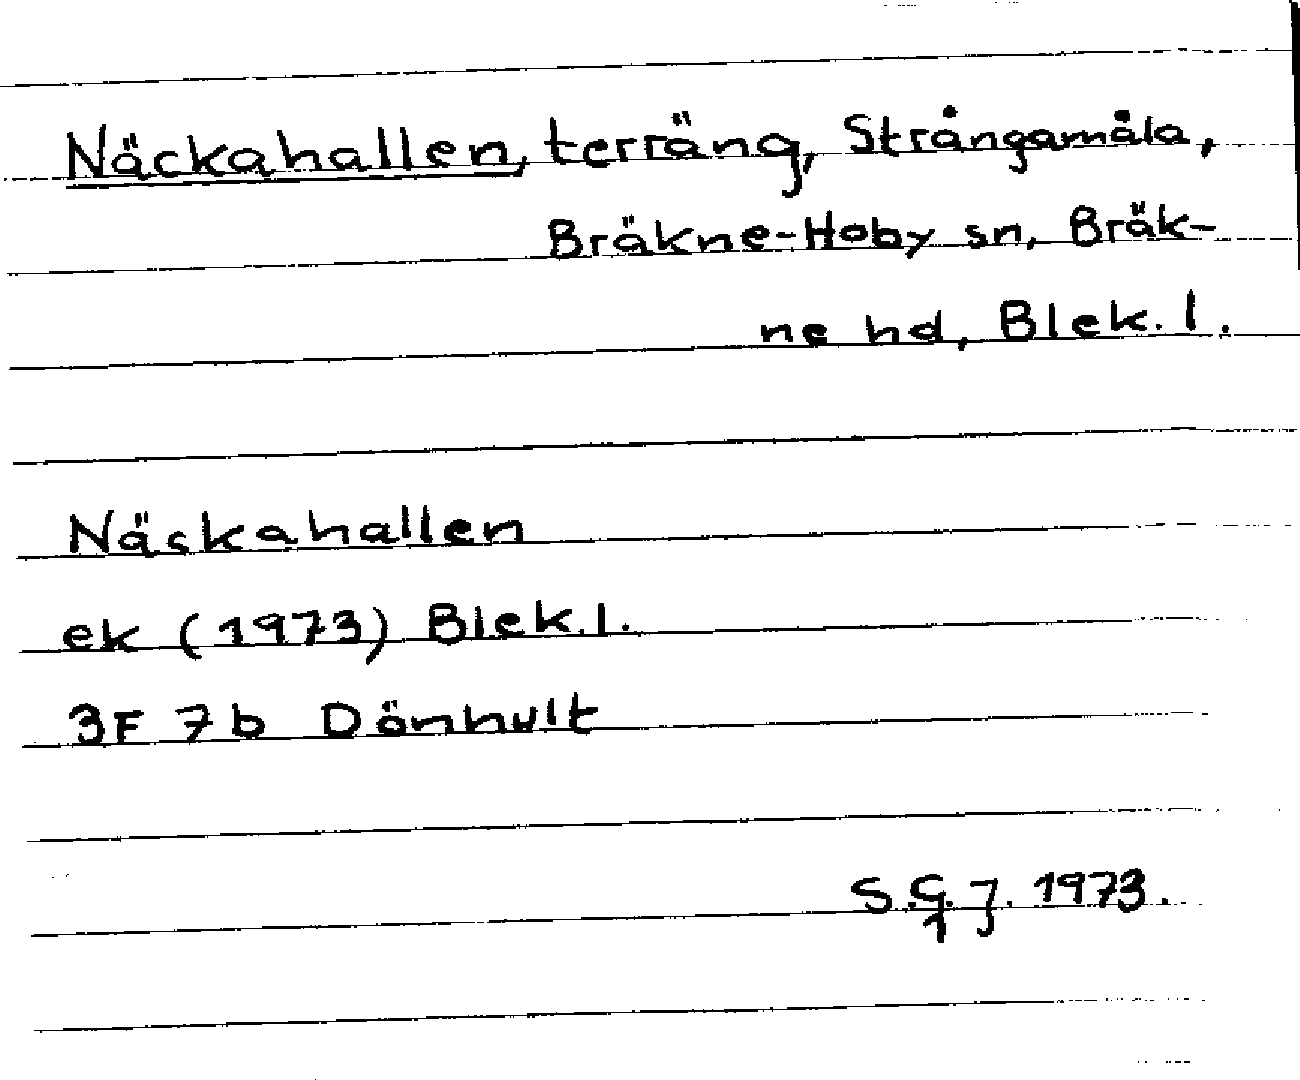 Näckahallen, terräng, Strångamåla,
Bräkne-Hoby sn, Bräk-
ne hd, Blek. l.
Näckahallen
ek (1973) Blek. l.
3F 7b Dönhult
S.G.J. 1973.